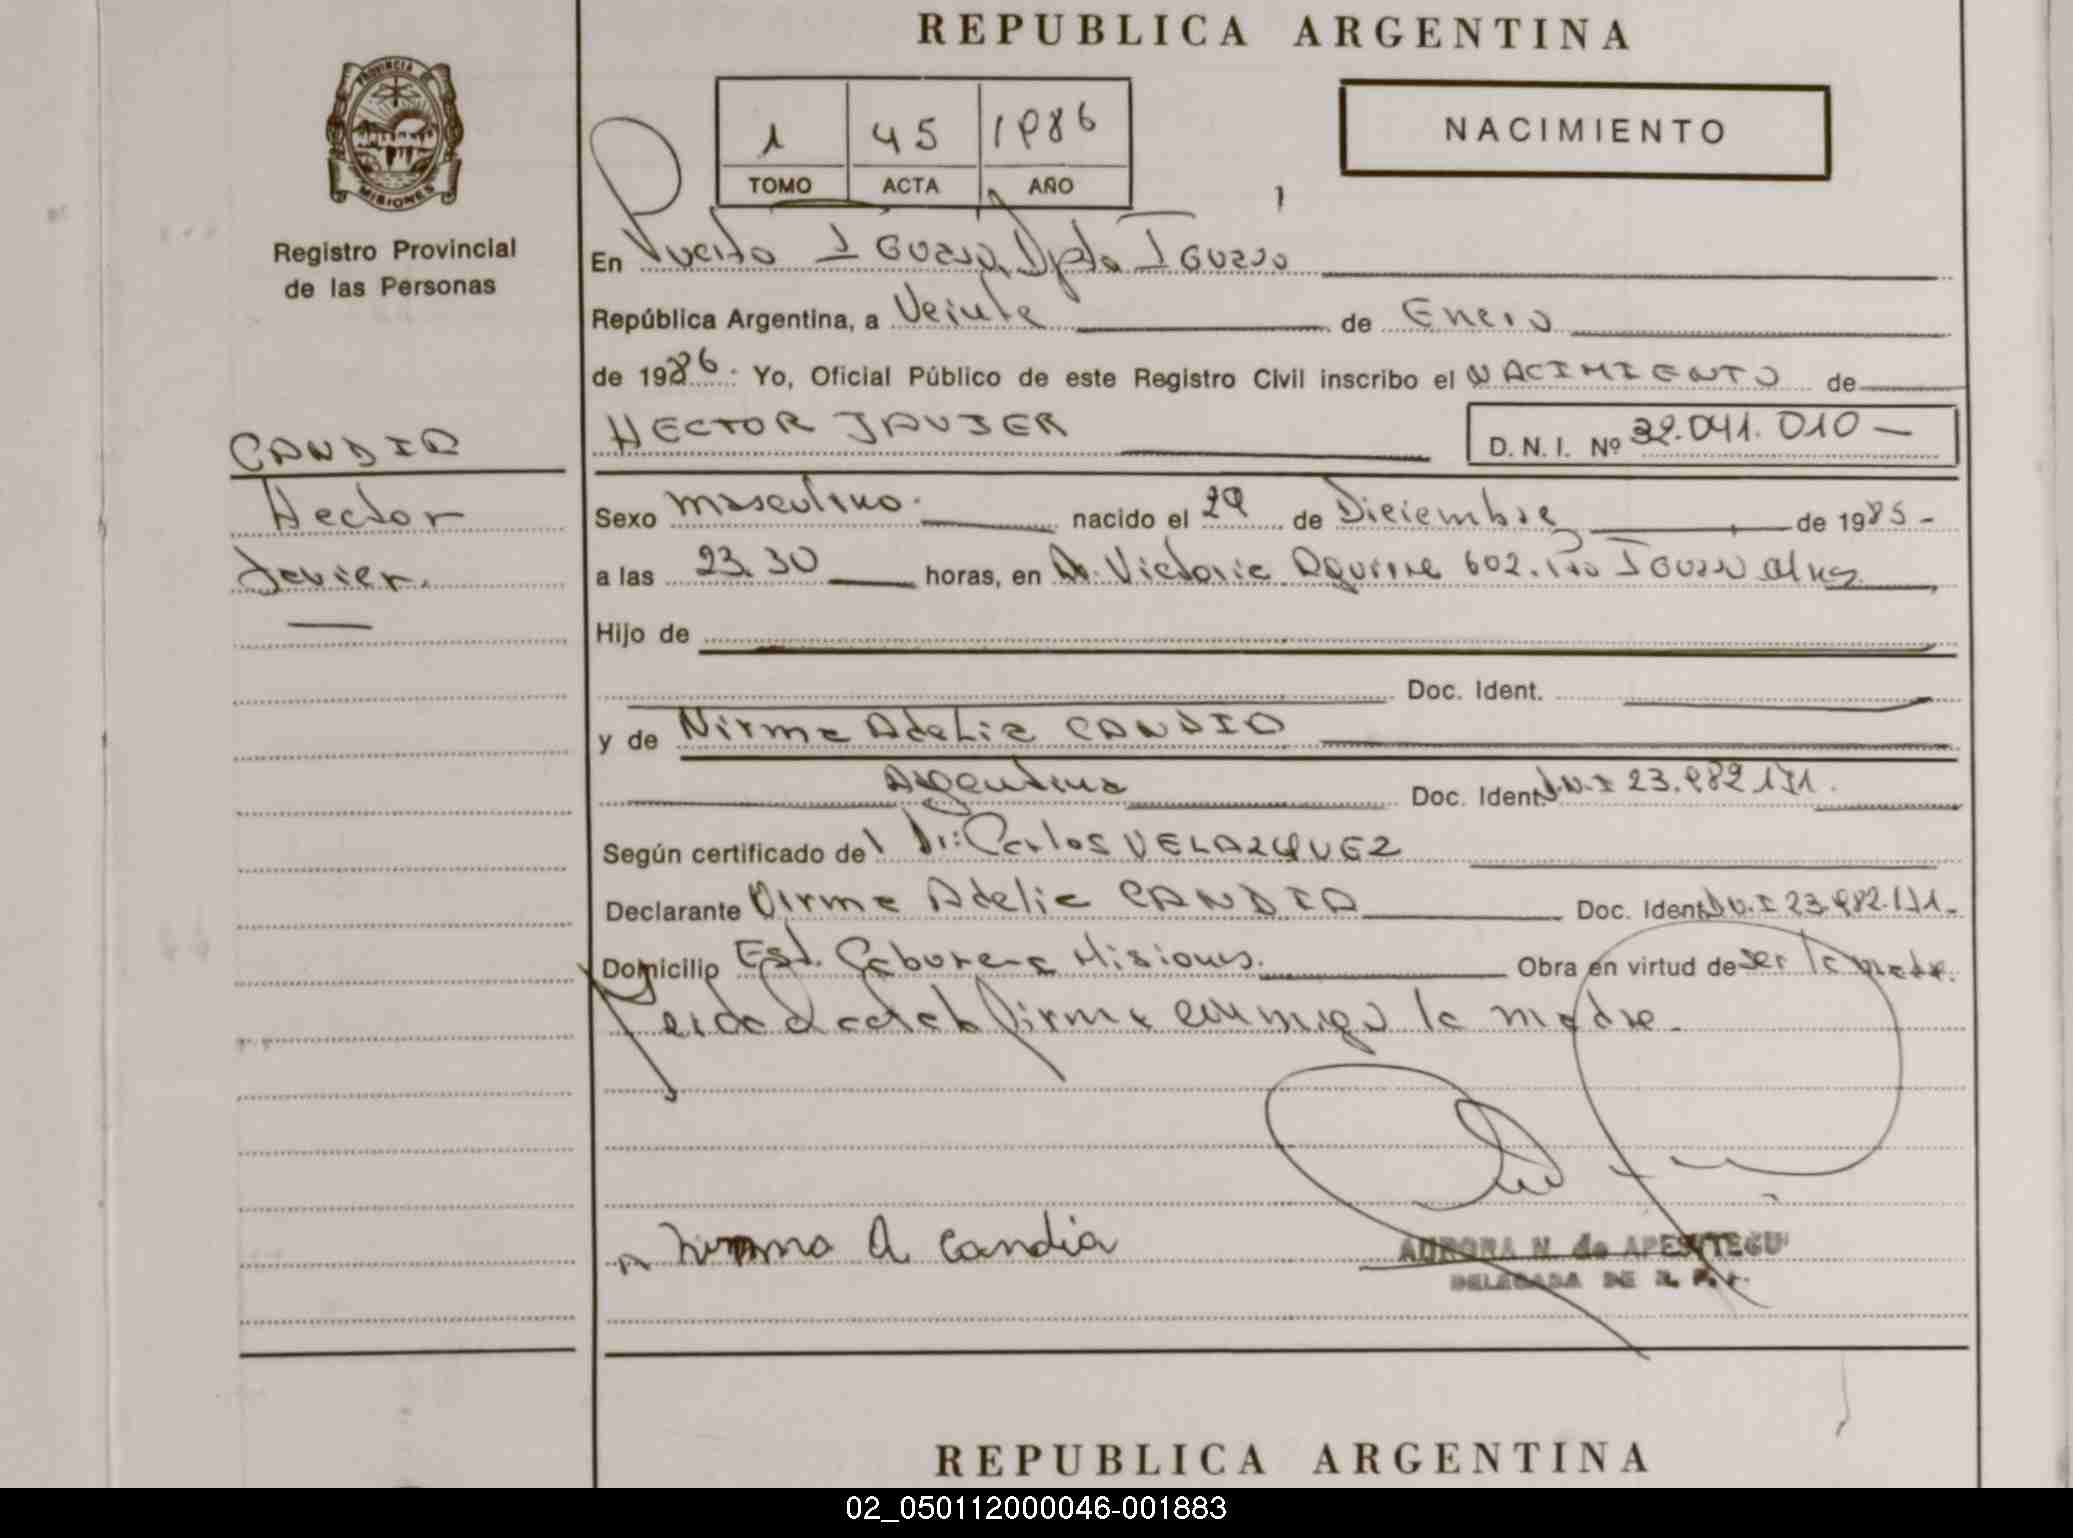 REPUBLICA ARGENTINA
PROVINCIA DE
MISIONES
Registro Provincial
de las Personas
1 45 1986
TOMO ACTA AÑO
NACIMIENTO
En Puerto Iguazú, Dpto Iguazú
República Argentina, a Veinte de Enero
de 1986. Yo, Oficial Público de este Registro Civil inscribo el NACIMIENTO de
CANDIA
Hector
Javier.
HECTOR JAVIER
D. N. I. Nº 32.041.010
Sexo masculino. nacido el 29 de Diciembre de 1985
a las 23.30 horas, en Av. Victoria Aguirre 602. Pto Iguazú
Hijo de
Doc. Ident.
y de Nirma Adelia CANDIA
Argentina Doc. Ident. D.N.I 23.982.171.
Según certificado del Dr: Carlos VELAZQUEZ
Declarante Nirma Adelia CANDIA Doc. Ident. D.N.I 23.982.171
Domicilio Misiones. Obra en virtud de ser la madre.
Leida el acta firma conmigo la madre.
Nirma A Candia
AURORA N. de APESTEGUI
DELEGADA DE R. P.
REPUBLICA ARGENTINA
02_050112000046-001883